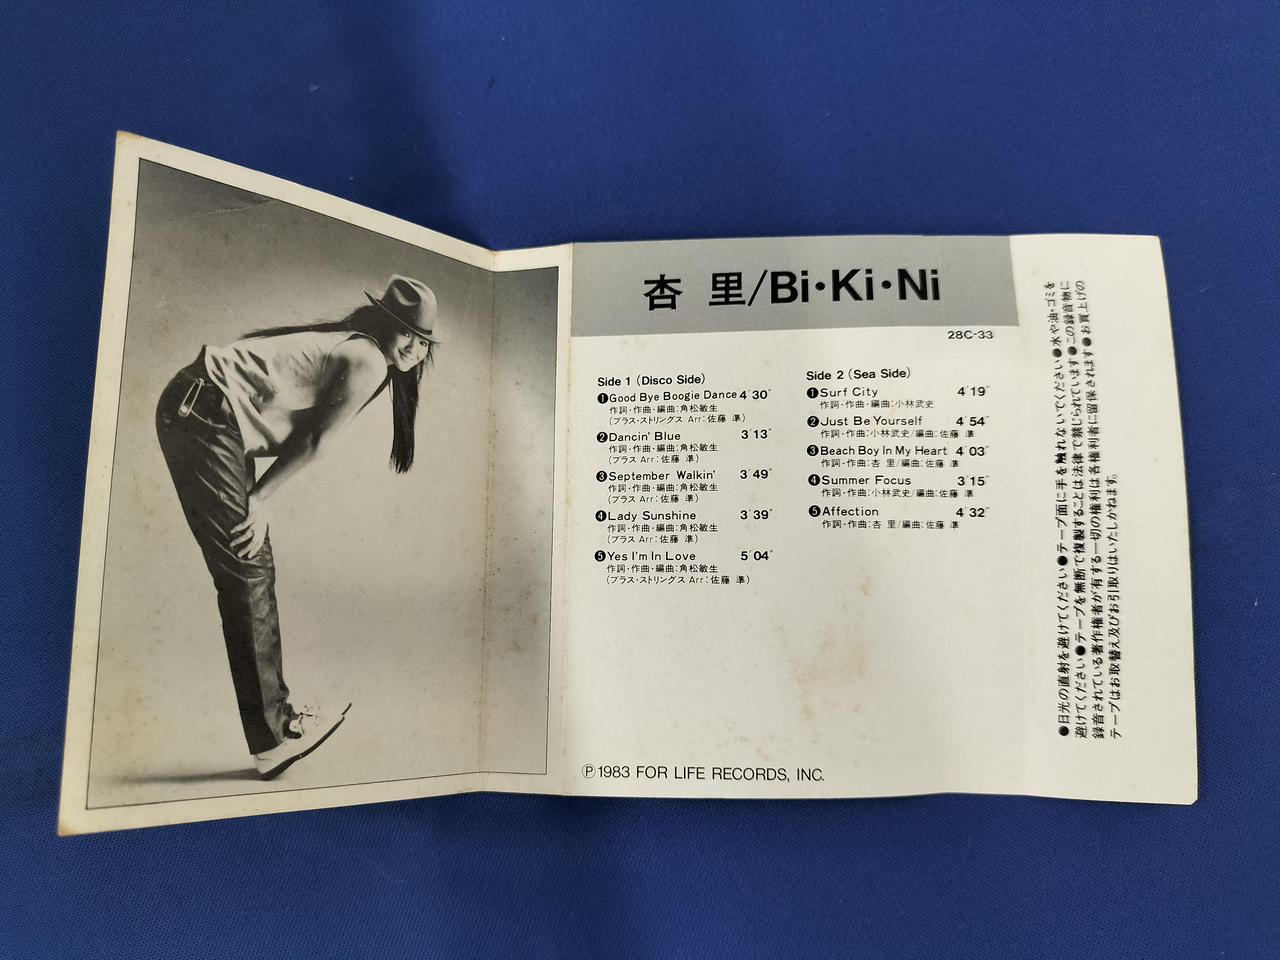 杏 里/Bi・Ki・Ni
28C-33
Side 1 (Disco Side)
❶Good Bye Boogie Dance 4′30″
作詞・作曲・編曲:角松敏生
(ブラス・ストリングス Arr:佐藤 準)
❷Dancin' Blue 3′13″
作詞・作曲・編曲:角松敏生
(ブラス Arr:佐藤 準)
❸September Walkin' 3′49″
作詞・作曲・編曲:角松敏生
(ブラス Arr:佐藤 準)
❹Lady Sunshine 3′39″
作詞・作曲・編曲:角松敏生
(ブラス Arr:佐藤 準)
❺Yes I'm In Love 5′04″
作詞・作曲・編曲:角松敏生
(ブラス・ストリングス Arr:佐藤 準)
Side 2 (Sea Side)
❶Surf City 4′19″
作詞・作曲・編曲:小林武史
❷Just Be Yourself 4′54″
作詞・作曲:小林武史/編曲:佐藤 準
❸Beach Boy In My Heart 4′03″
作詞・作曲:杏 里/編曲:佐藤 準
❹Summer Focus 3′15″
作詞・作曲:小林武史/編曲:佐藤 準
❺Affection 4′32″
作詞・作曲:杏 里/編曲:佐藤 準
Ⓟ1983 FOR LIFE RECORDS, INC.
●日光の直射を避けてください●テープ面に手を触れないでください●水や油・ゴミを
避けてください●テープを無断で複製することは法律で禁じられています●この録音物に
録音されている著作権者が有する一切の権利は各権利者に留保されます●お買上げの
テープはお取替え及びお引取りはいたしかねます。